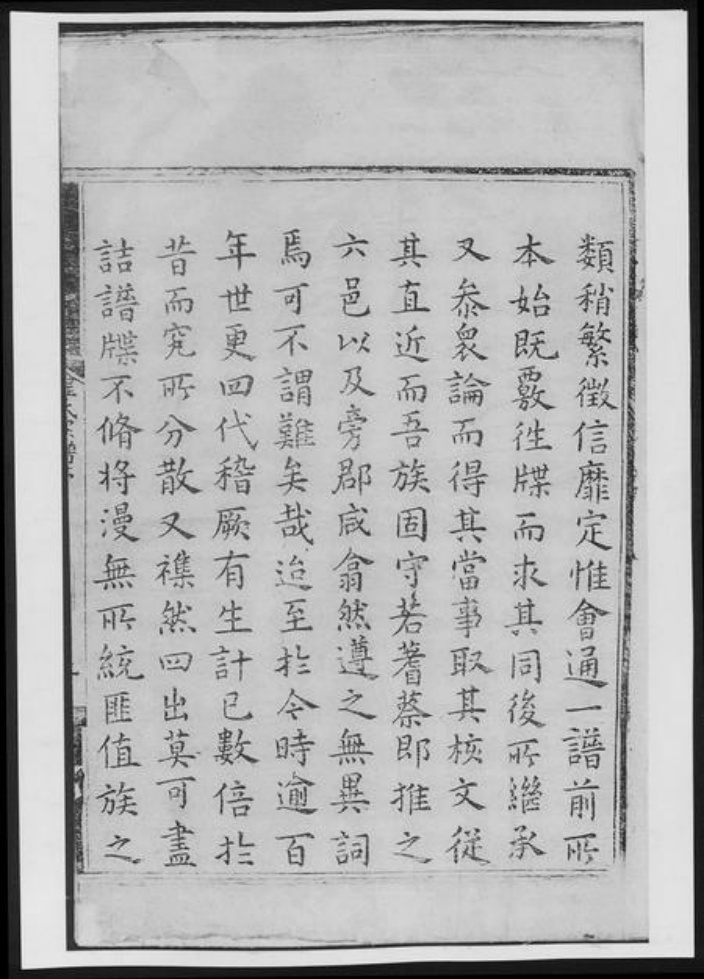 類稍繁徵信靡定惟會通一譜前所
本始既覈徃牒而求其同後所繼承
又叅衆論而得其當事取其核文従
其直近而吾族固守若蓍蔡即推之
六邑以及旁郡咸翕然遵之無異詞
焉可不謂難矣哉迨至扵今時逾百
年世更四代稽厥有生計已數倍扵
昔而究所分散又襍然四出莫可盡
詰譜牒不脩将漫無所統匪值族之